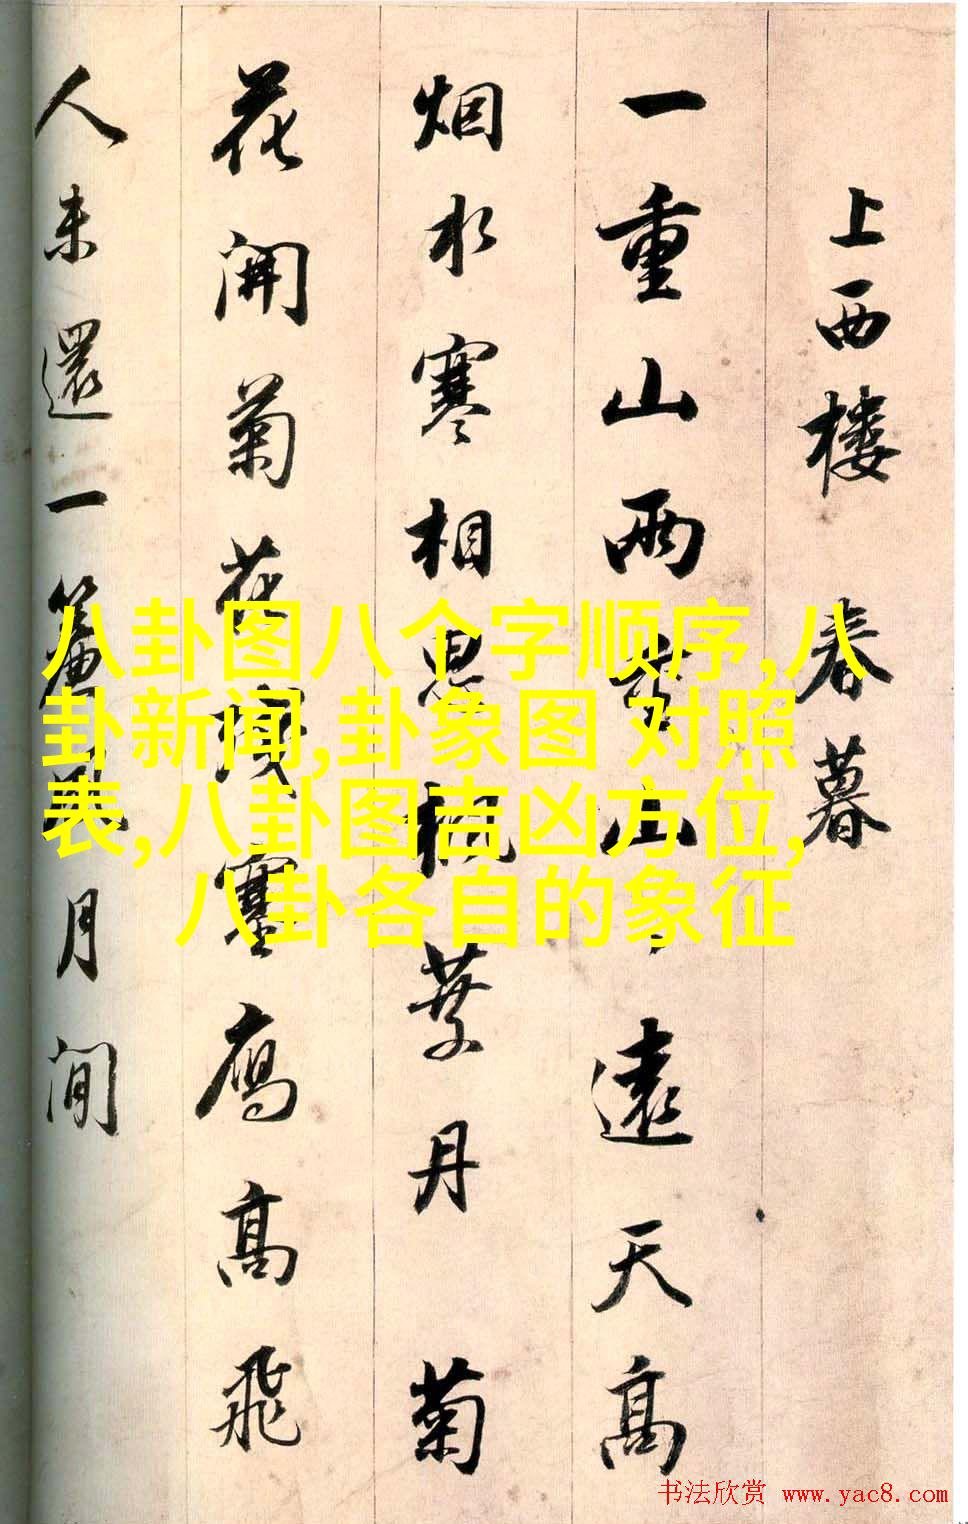 上西楼 春暮
一重山兩重山、遠天高
烟水寒相思楓葉丹 菊
花開菊花殘塞鴈高飛
人未還一簾風月閒
八卦图八个字顺序,八
卦新闻,卦象图 对照
表,八卦图吉凶方位,
八卦各自的象征
书法欣赏 www.yac8.com